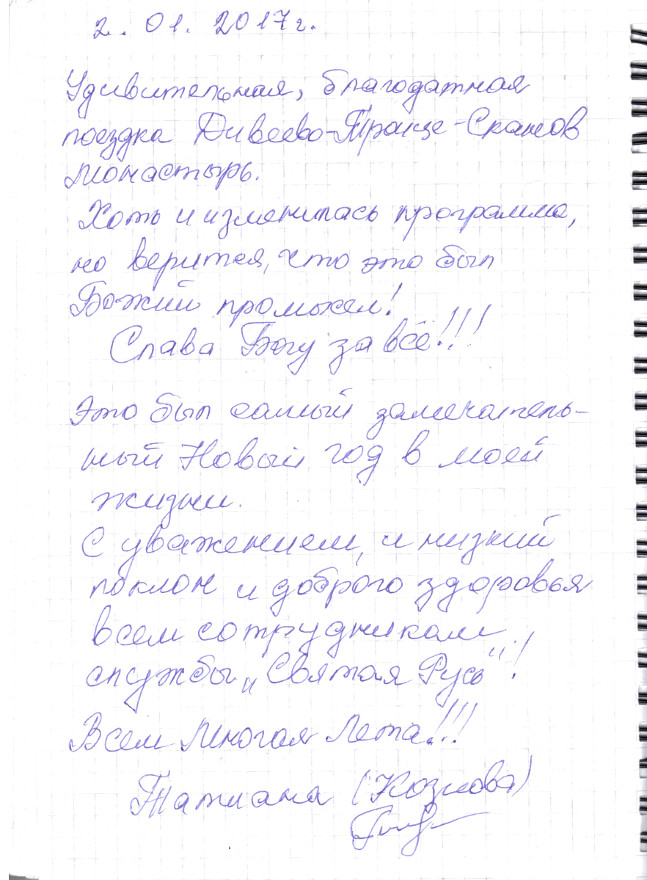 2. 01. 2017 г.
Удивительная, благодатная
поездка Дивеево-Троице-Сканов
монастырь.
Хоть и изменилась программа,
но верится, что это был
Божий промысел!
Слава Богу за всё!!!
Это был самый замечатель-
ный Новый год в моей
жизни.
С уважением, и низкий
поклон и доброго здоровья
всем сотрудникам
службы „Святая Русь"!
Всем Многая Лета!!!
Татиана (Козлова)